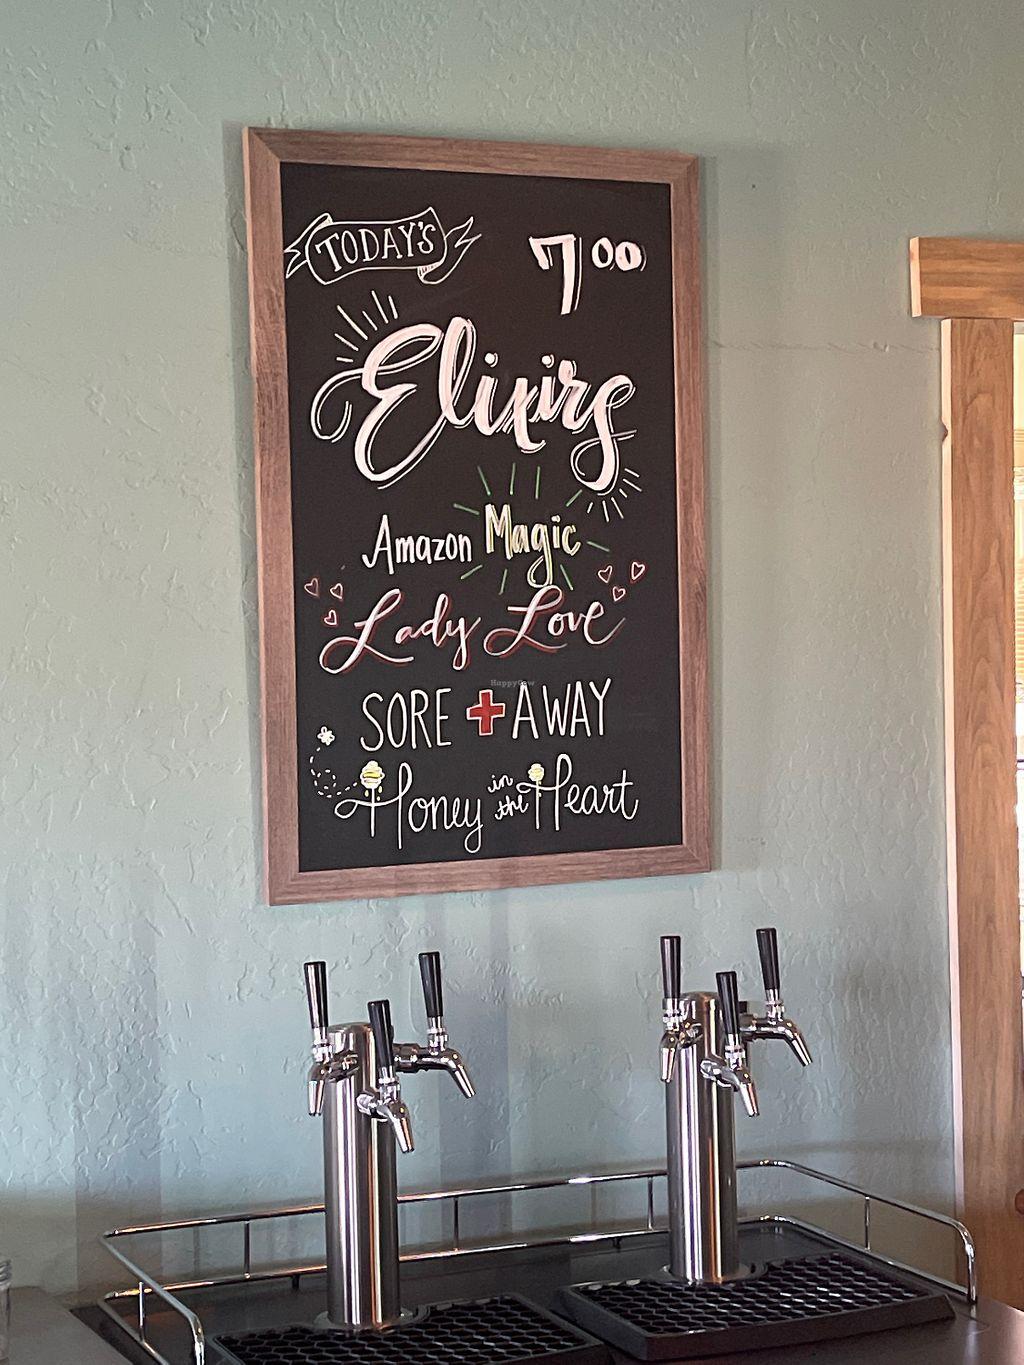 TODAY'S 7.00
Elixirs
Amazon Magic
Lady Love
HappyCow
SORE AWAY
Honey in the Heart